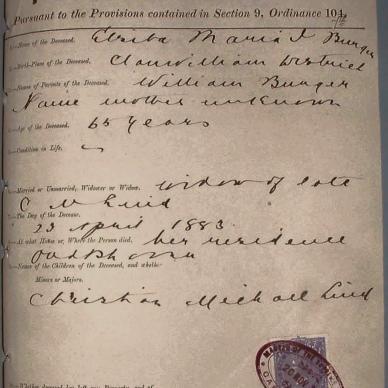 Pursuant to the Provisions contained in Section 9, Ordinance 104,
—Name of the Deceased. Elsiba Maria J Burger
—Birth-Place of the Deceased. Clanwilliam District
—Names of Parents of the Deceased. William Burger
Name mother unknown
—Age of the Deceased. 65 Years
—Condition in Life.
—Married or Unmarried, Widower or Widow. Widow of late
C M Lind
—The Day of the Decease. 23 April 1883
—At what House or Where the Person died, her residence
Oudtshoorn
—Names of the Children of the Deceased, and whether
Minors or Majors.
Christian Michael Lind
—Whether deceased has left any Property, and of